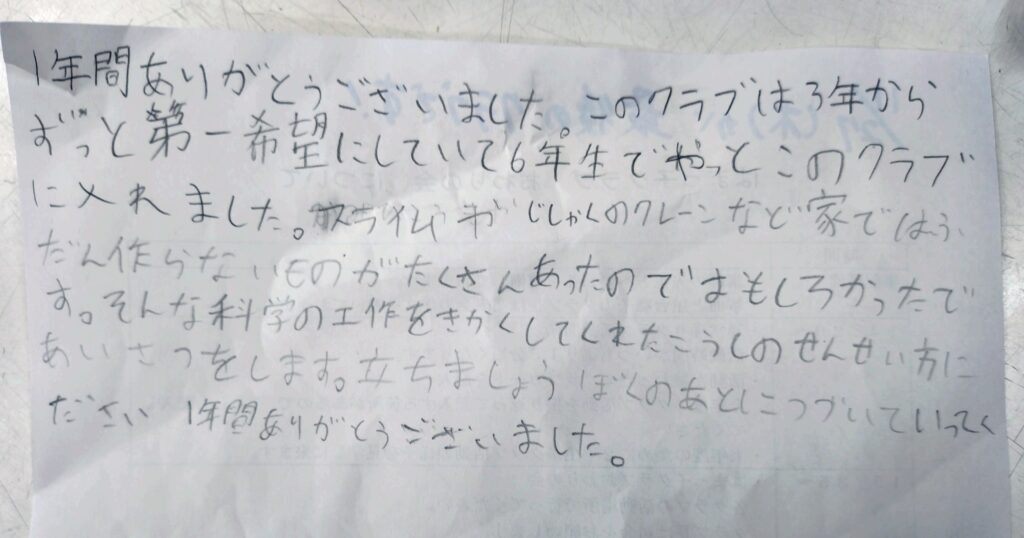 1年間ありがとうございました。このクラブは3年から
ずっと第一希望にしていて6年生でやっとこのクラブ
に入れました。スライムやじしゃくのクレーンなど家ではふ
だん作らないものがたくさんあったのでおもしろかったで
す。そんな科学の工作をきかくしてくれたこうしのせんせい方に
あいさつをします。立ちましょうぼくのあとにつづいていってく
ださい 1年間ありがとうございました。